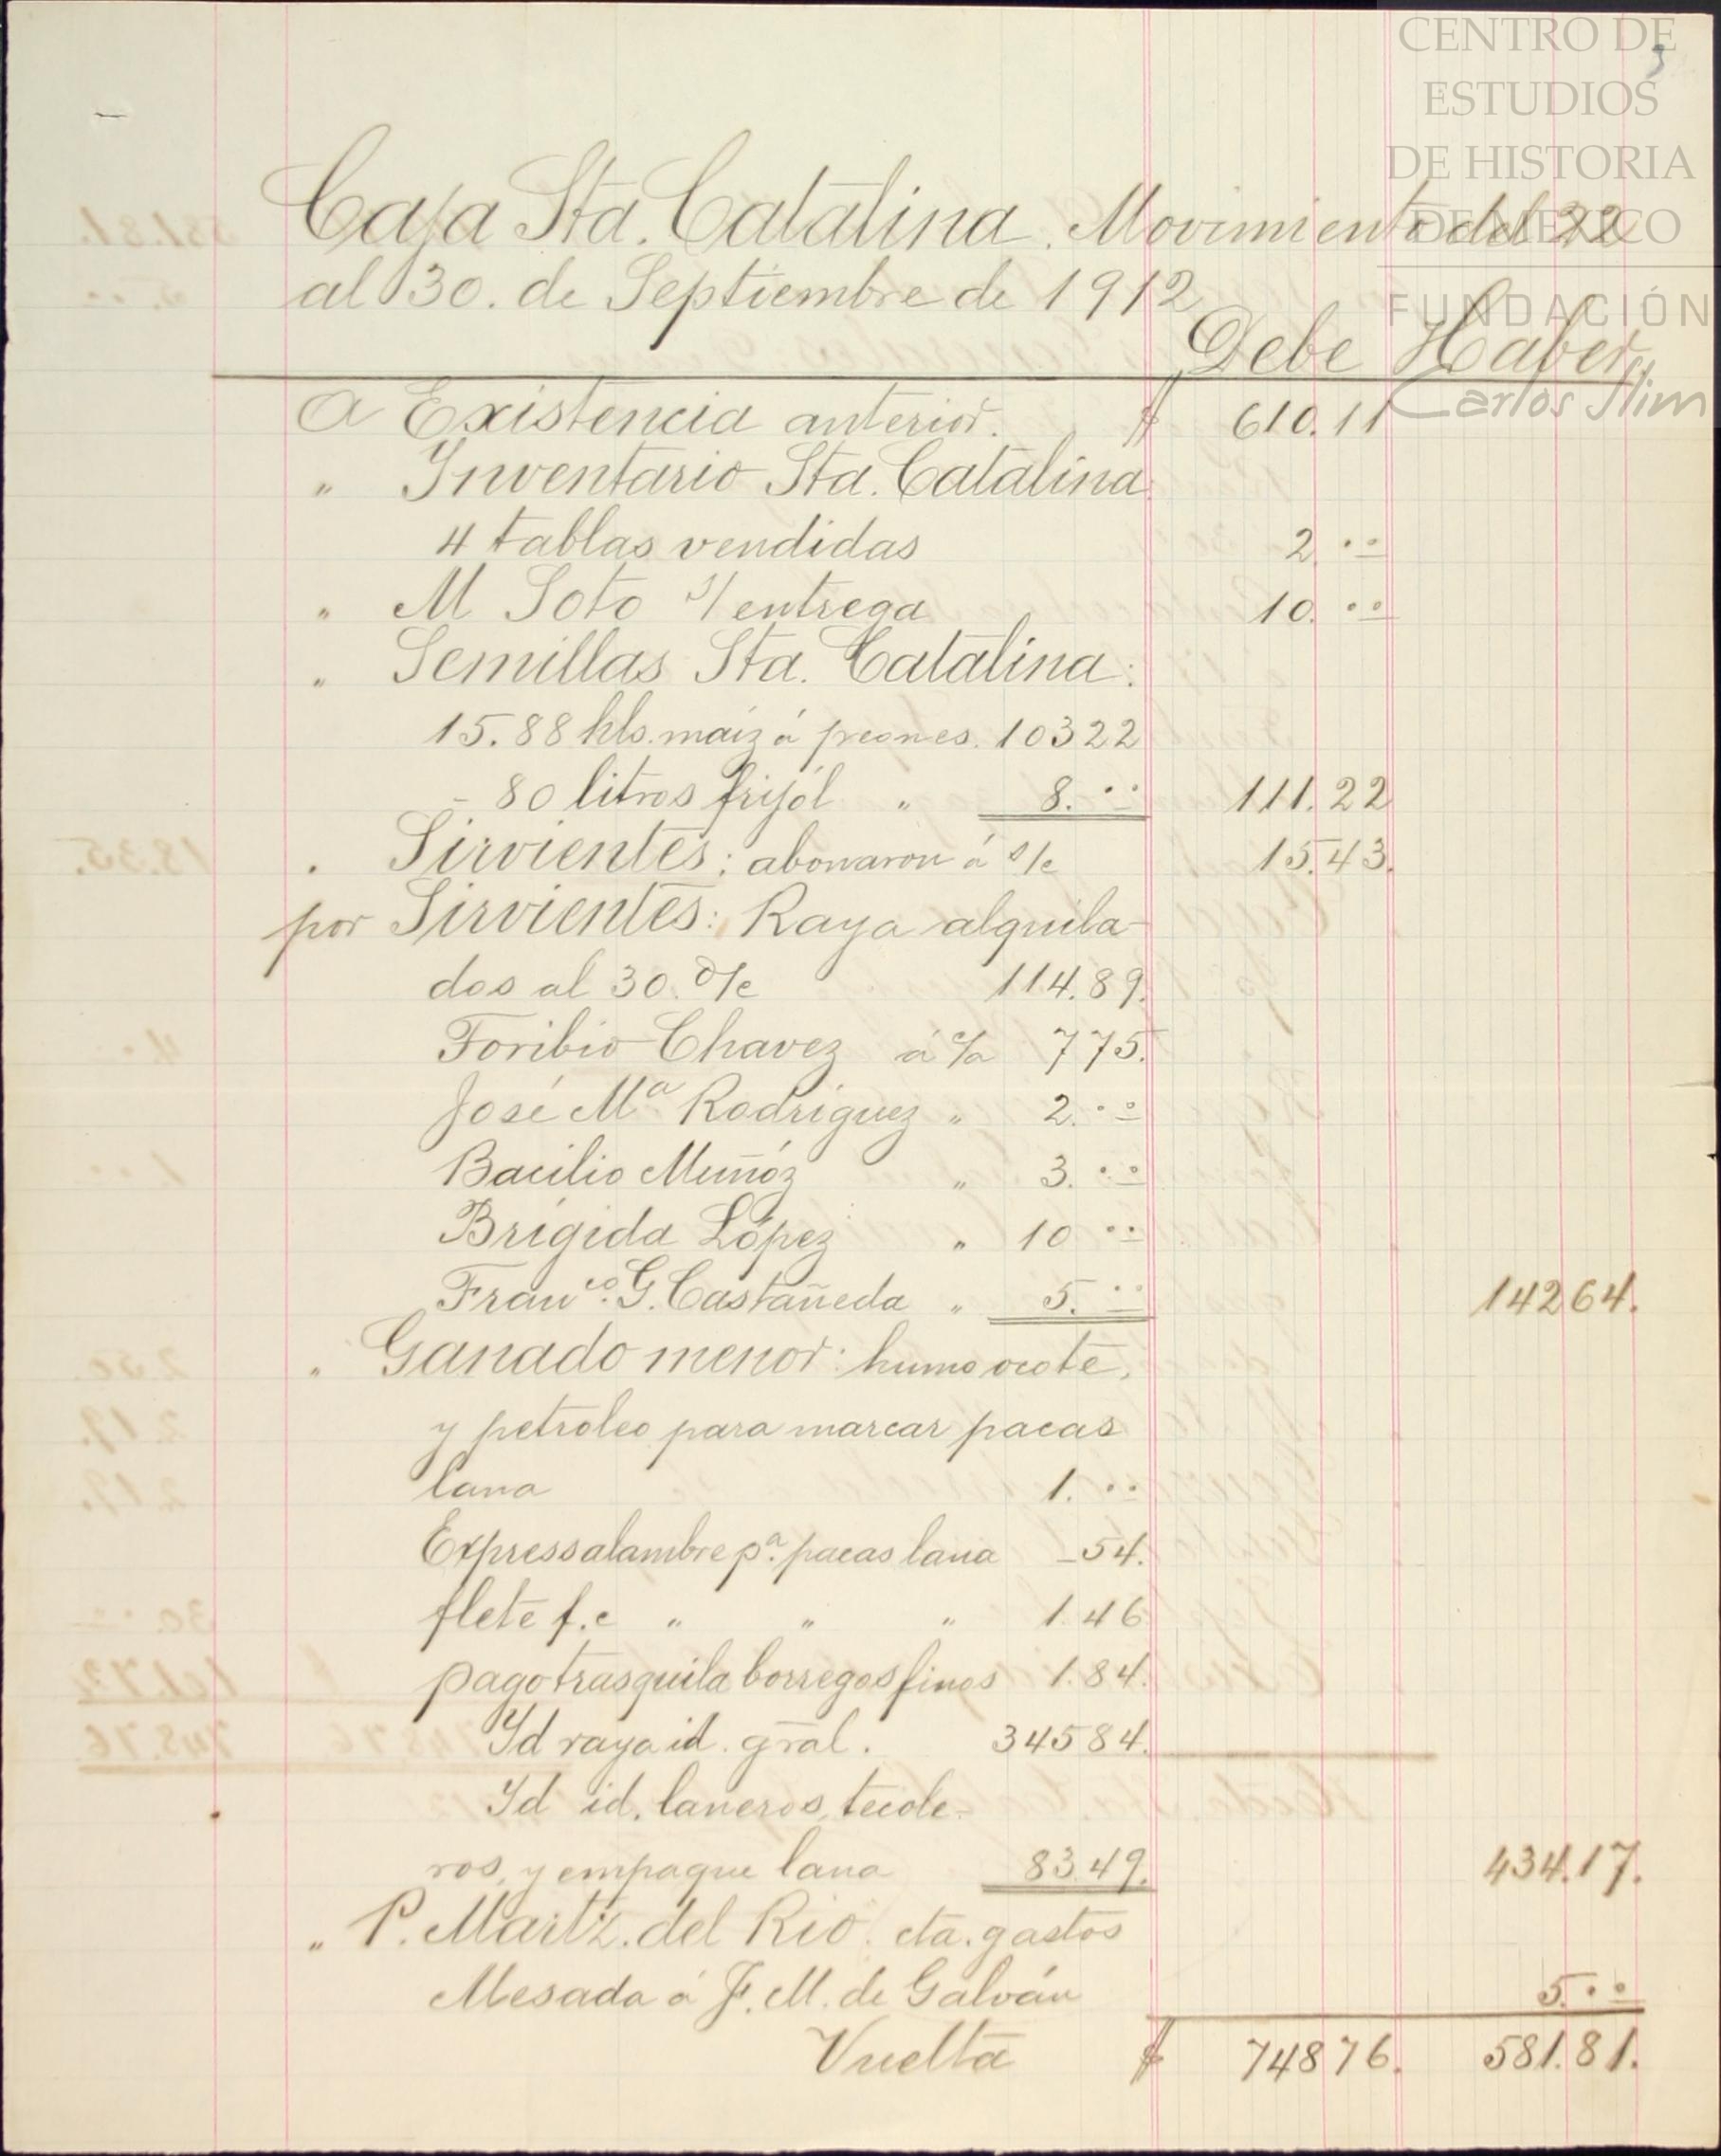 CENTRO DE
ESTUDIOS
DE HISTORIA
DE MÉXICO
FUNDACIÓN
Carlos Slim
3
Caja Sta. Catalina. Movimiento del 22
al 30. de Septiembre de 1912
Debe Haber
A Existencia anterior. $ 610.11
" Inventario Sta. Catalina
4 tablas vendidas 2 ..
" M Soto s/ entrega 10. ..
" Semillas Sta. Catalina:
15.88 hls. maíz á peones. 10322
- 80 litros frijól " 8. .. 111.22
" Sirvientes: abonaron á s/c 15.43.
por Sirvientes: Raya alquila-
dos al 30. d/c 114.89.
Toribio Chavez á c/a 775.
José Ma. Rodríguez " 2. ..
Bacilio Muñóz " 3. ..
Brígida López " 10 ..
Franco. G. Castañeda " 5. .. 14264.
" Ganado menor: humo ocote,
y petroleo para marcar pacas
lana 1. ..
Express alambre pa. pacas lana -54.
flete f.c " " " 1.46
pago trasquila borregos finos 1.84.
Id raya id. gral. 34584.
Id id. laneros, tecole-
ros, y empaque lana 83.49. 434.17.
" P. Martz. del Rio. cta. gastos
Mesada á F. M. de Galván 5. ..
Vuelta $ 74876. 581.81.